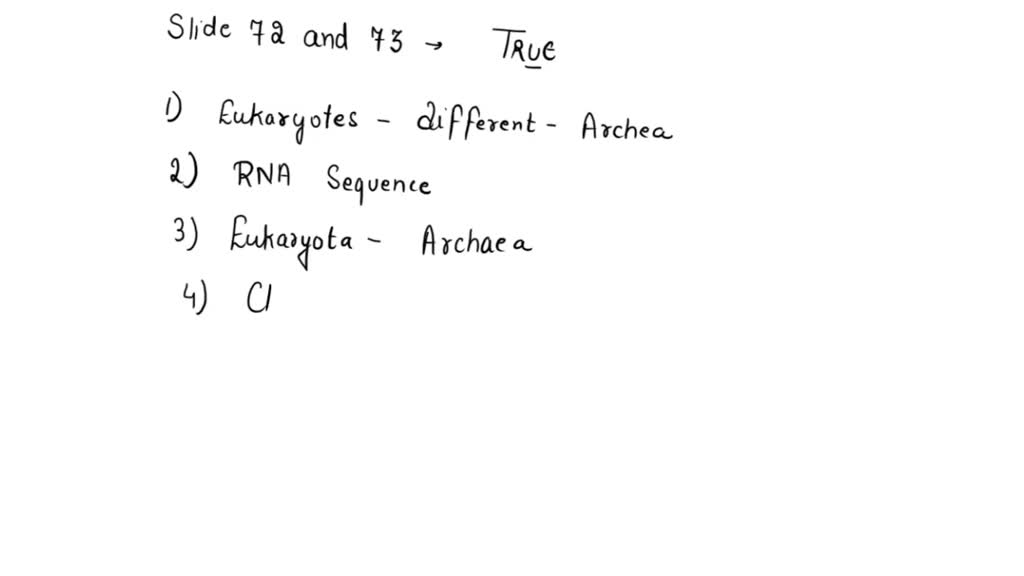 Slide 72 and 73 → TRUE
1) Eukaryotes - different - Archea
2) RNA Sequence
3) Eukaryota - Archaea
4) Cl